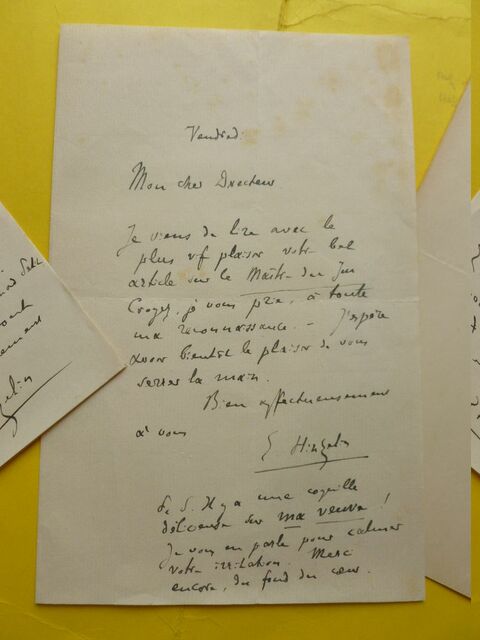 Vendredi
Mon cher Directeur
Je viens de lire avec le
plus vif plaisir votre bel
article sur le Maître du Jeu
Croyez, je vous prie, à toute
ma reconnaissance. - J'espère
avoir bientôt le plaisir de vous
serrer la main.
Bien affectueusement
à vous
E. Hinzelin
P. S. Il y a une coquille
délicieuse sur ma veuve !
Je vous en parle pour calmer
votre irritation. Merci
encore, du fond du cœur.